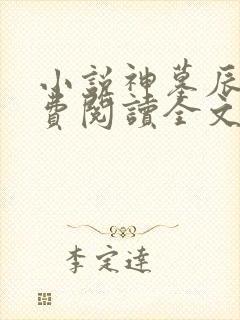 小說神墓辰
費閱讀全文
李定達